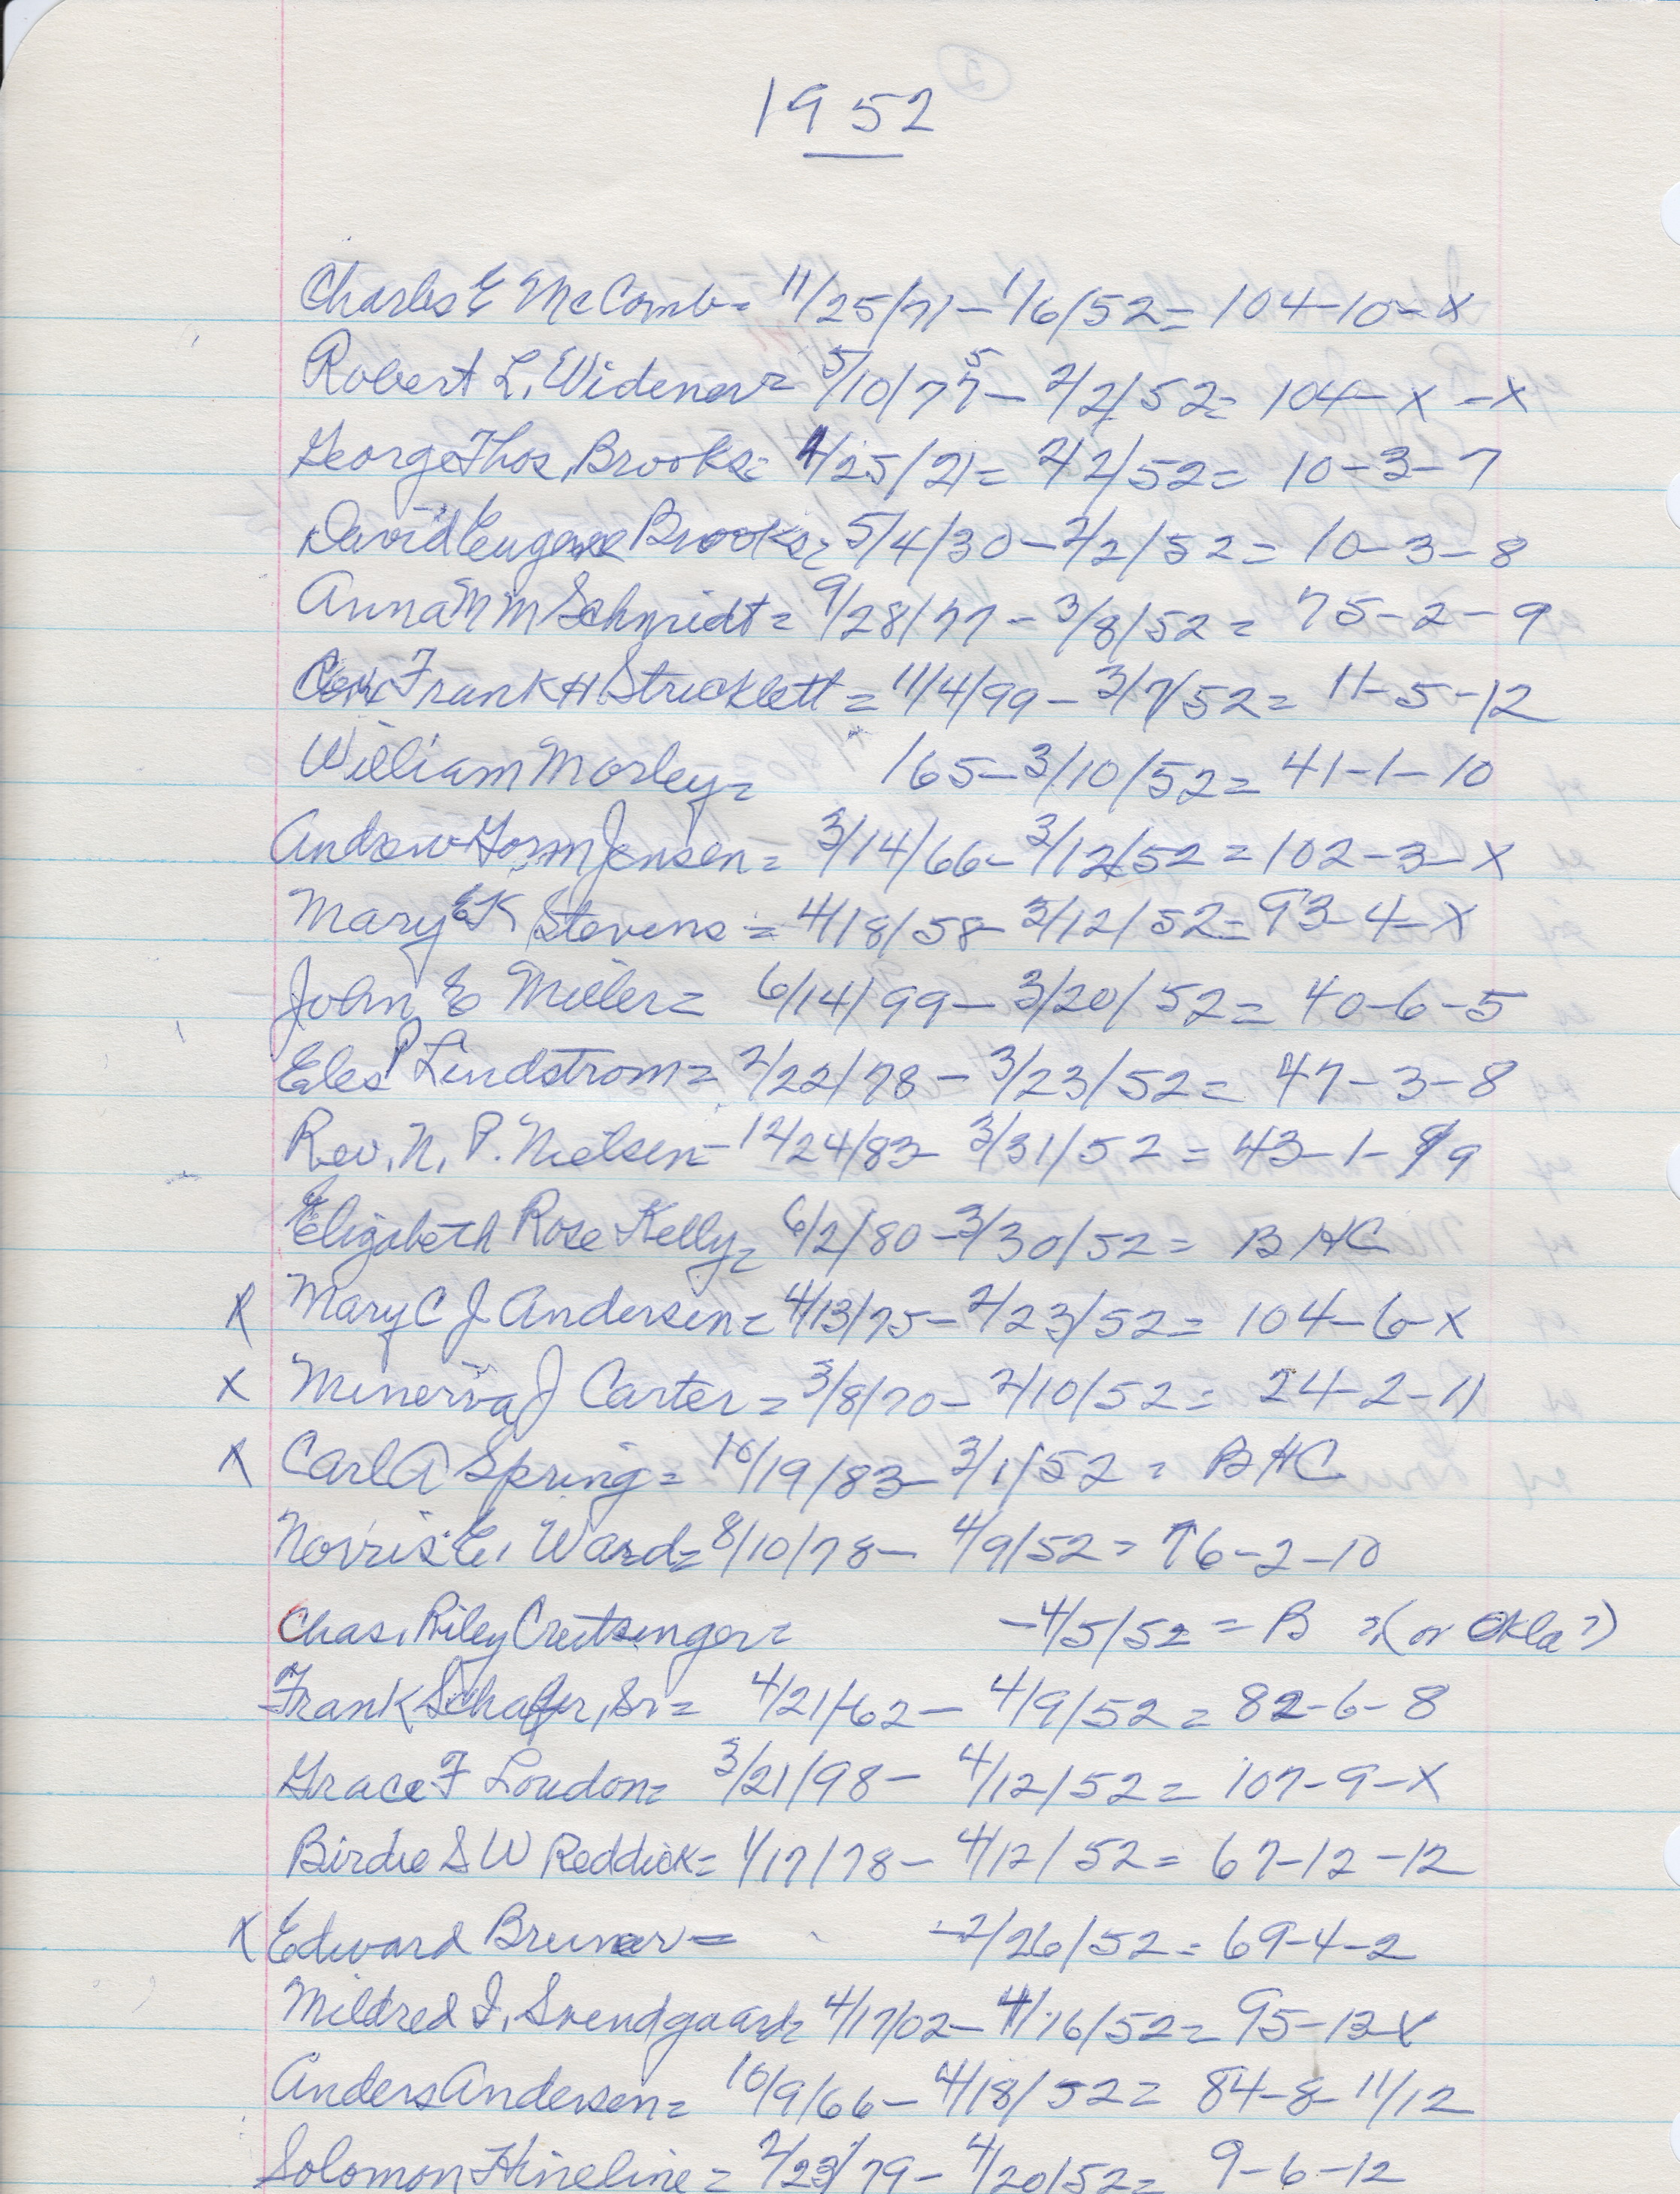 1952
Charles E McComb= 11/25/71-1/6/52= 104-10-X
Robert L. Widener= 5/10/75- 2/2/52= 104-X-X
George Thos. Brooks= 4/25/21= 2/2/52= 10-3-7
David Eugene Brooks= 5/4/30-2/2/52= 10-3-8
Anna M M Schmidt= 9/28/77-3/8/52= 75-2-9
Frank H. Stricklett= 11/4/99-3/7/52= 11-5-12
William Morley= /65-3/10/52= 41-1-10
Andrew Gorm Jensen= 3/14/66-3/12/52=102-3-X
Mary E K Stevens= 4/18/58-3/12/52=93-4-X
John E Miller= 6/14/99-3/20/52= 40-6-5
Eles P Lindstrom= 2/22/78-3/23/52= 47-3-8
Rev. N. P. Nielsen-12/24/83-3/31/52= 43-1-9
Elizabeth Rose Kelly= 6/2/80-3/30/52= BHC
X Mary C J Andersen= 4/13/75-2/23/52= 104-6-X
X Minerva J Carter= 3/8/70-2/10/52= 24-2-11
X Carl A Spring= 10/19/83-3/1/52= BHC
Norris E. Ward= 8/10/78- 4/9/52= 76-2-10
Chas. Riley Creitsinger= -4/5/52= B ?(or Okla?)
Frank Schafer, Sr= 4/21/62- 4/9/52= 82-6-8
Grace F Loudon= 3/21/98- 4/12/52= 107-9-X
Birdie S W Reddick= 1/17/78- 4/12/52= 67-12-12
X Edward Bruner= -2/26/52= 69-4-2
Mildred I. Svendgaard= 4/17/02-4/16/52= 95-12-X
Anders Andersen= 10/9/66-4/18/52= 84-8-11/12
Solomon Hineline= 2/23/79- 4/20/52= 9-6-12